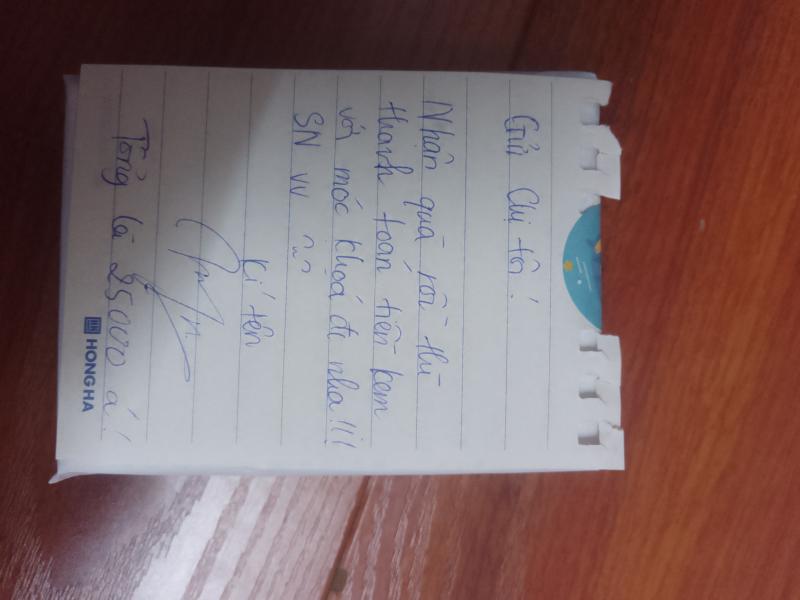 Gửi Chị tôi!
Nhận quà rồi thì
thanh toán tiền kem
với móc khoá đi nha!!!
SN vv
Kí tên
Tổng là 25000 á!
HONG HA